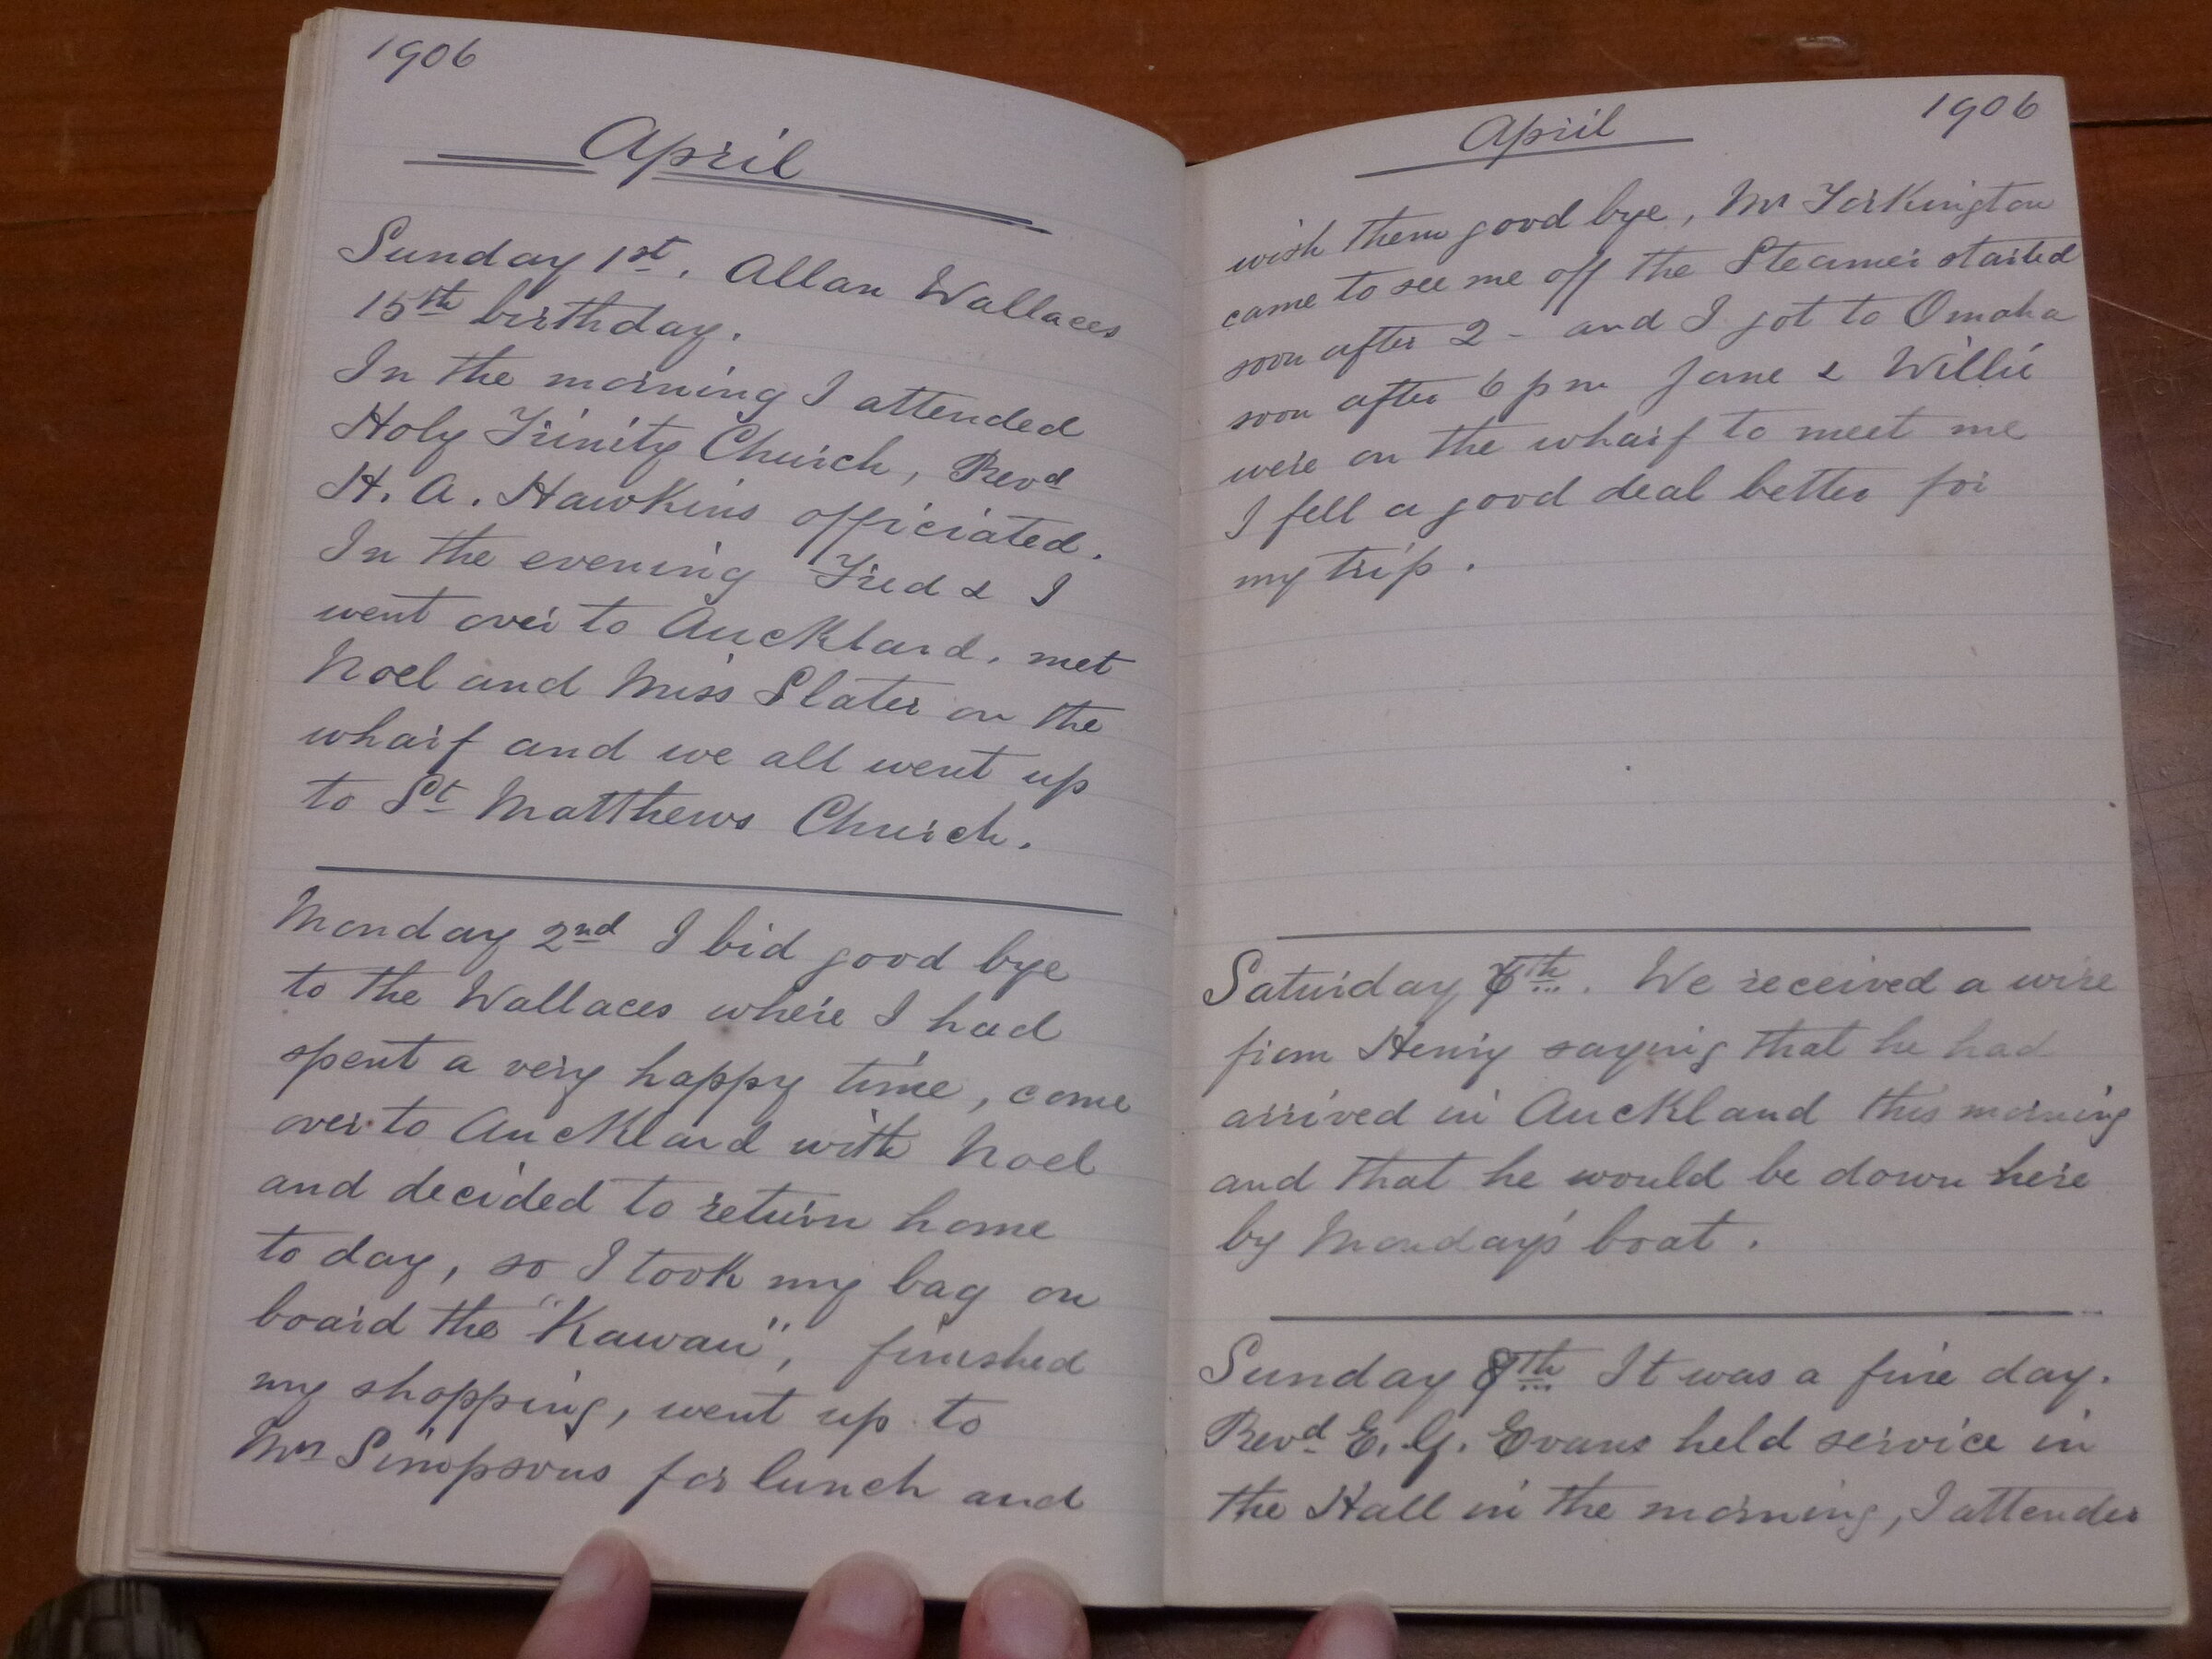 1906
April
Sunday 1st. Allan Wallaces
15th birthday.
In the morning I attended
Holy Trinity Church, Revd
H. A. Hawkins officiated.
In the evening Fred & I
went over to Auckland. met
Noel and Miss Slater on the
wharf and we all went up
to St Matthews Church.
Monday 2nd I bid good bye
to the Wallaces where I had
spent a very happy time, come
over to Auckland with Noel
and decided to return home
to day, so I took my bag on
board the "Kawau", finished
my shopping, went up to
Mrs Simpsons for lunch and
April 1906
wish them good bye, Mr Torkington
came to see me off the Steamer started
soon after 2 - and I got to Omaha
soon after 6 pm Jane & Willie
were on the wharf to meet me
I fell a good deal better for
my trip.
Saturday 7th. We received a wire
from Henry saying that he had
arrived in Auckland this morning
and that he would be down here
by Monday's boat.
Sunday 8th It was a fine day.
Revd E. G. Evans held service in
the Hall in the morning, I attended